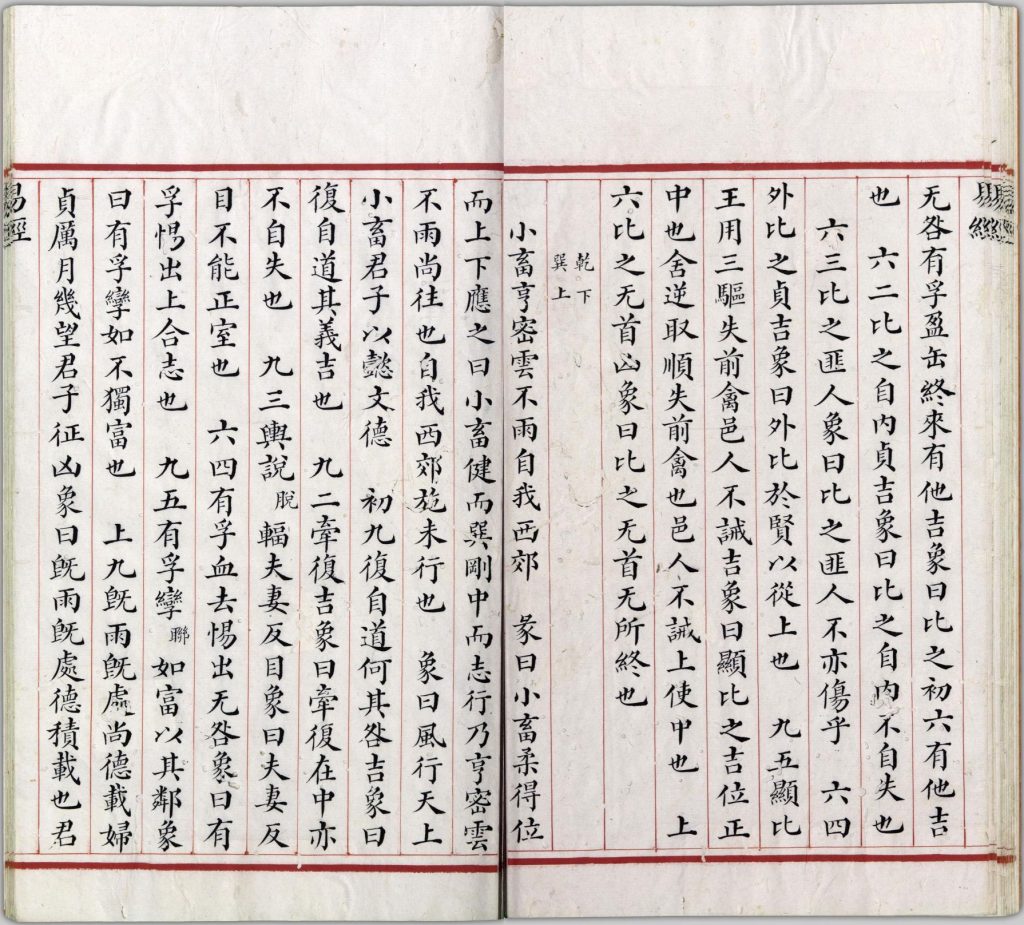 易經
无咎有孚盈缶終來有他吉象曰比之初六有他吉
也　六二比之自內貞吉象曰比之自內不自失也
六三比之匪人象曰比之匪人不亦傷乎　六四
外比之貞吉象曰外比於賢以從上也　九五顯比
王用三驅失前禽邑人不誡吉象曰顯比之吉位正
中也舍逆取順失前禽也邑人不誡上使中也　上
六比之无首凶象曰比之无首无所終也
乾下
巽上
小畜亨密雲不雨自我西郊　彖曰小畜柔得位
而上下應之曰小畜健而巽剛中而志行乃亨密雲
不雨尚往也自我西郊施未行也　象曰風行天上
小畜君子以懿文德　初九復自道何其咎吉象曰
復自道其義吉也　九二牽復吉象曰牽復在中亦
不自失也　九三輿說脫輻夫妻反目象曰夫妻反
目不能正室也　六四有孚血去惕出无咎象曰有
孚惕出上合志也　九五有孚攣聯如富以其鄰象
曰有孚攣如不獨富也　上九旣雨旣處尚德載婦
貞厲月幾望君子征凶象曰旣雨旣處德積載也君
易經